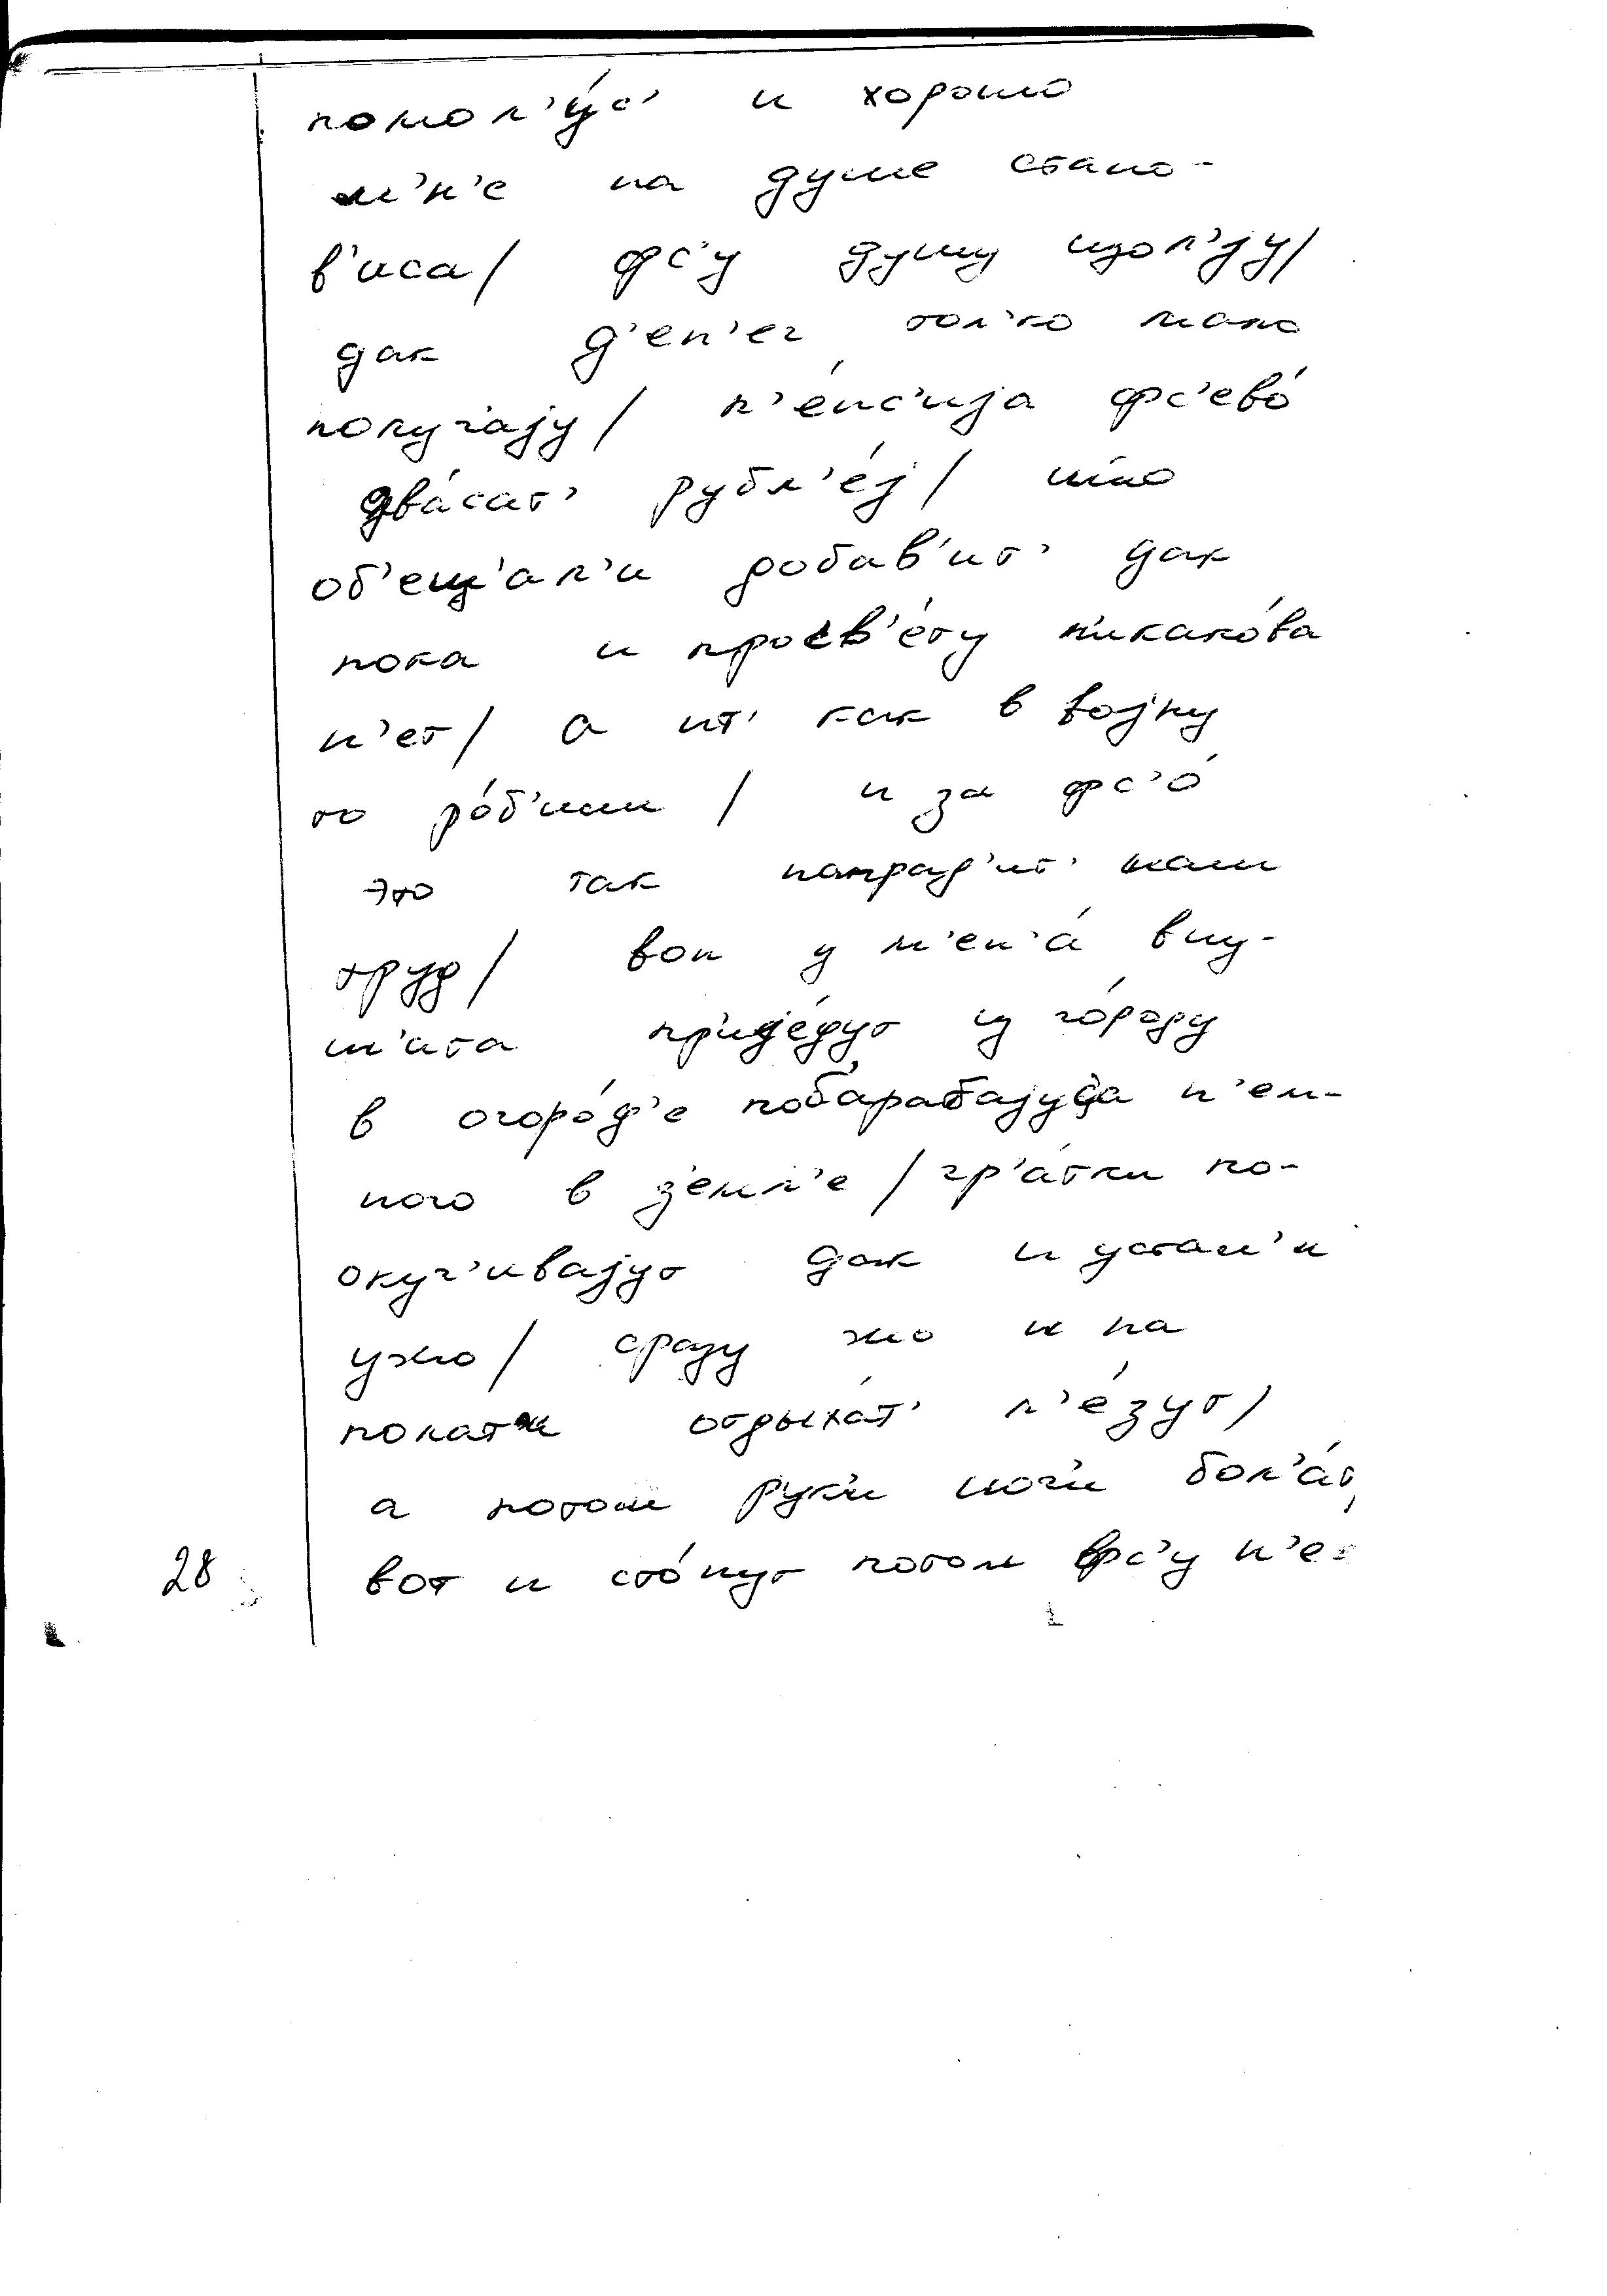 помол'у́с' и хорошо
м'н'е на душе стано-
в'иса/ фс'у душу изол'jу/
дак д'ен'ег тол'ко мало
получ'аjу/ п'е́нс'иjа фс'ево́
два́сат' рубл'е́j/ што
об'ещ'ал'и добав'ит' дак
пока и просв'е́ту никако́ва
н'ет/ а ит' как в воjну
то ро́б'или/ и за фс'о́
это так наград'ит' наш
труд/ вон у м'ен'а́ вну-
ч'ата приjе́дут из го́роду
в огоро́д'е побарабаjуца н'ем-
ного в земл'е/ гр'а́тки по-
окуч'иваjут дак и устал'и
ужо/ сразу жо и на
полат'и отдыха́т' л'е́зут/
а потом руки ноги бол'а́т,
28 вот и сто́нут потом фс'у н'е-